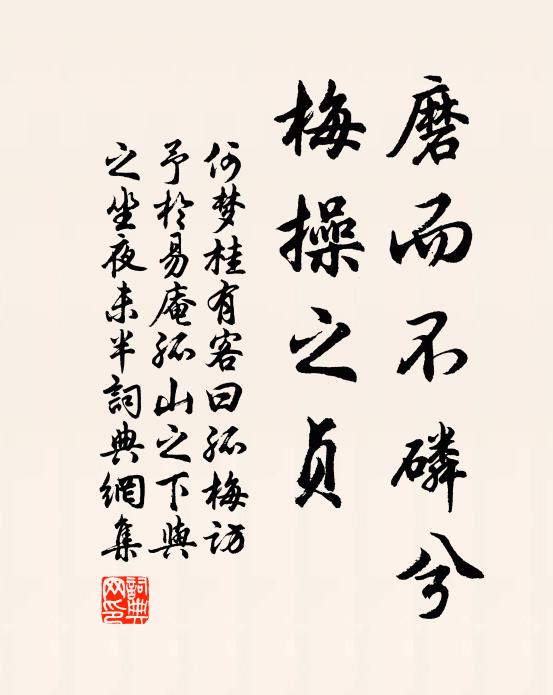 磨而不磷兮
梅操之贞
何梦桂有客曰孤梅访
予於易庵孤山之下與
之坐夜未半詞典網集
詞典
网印